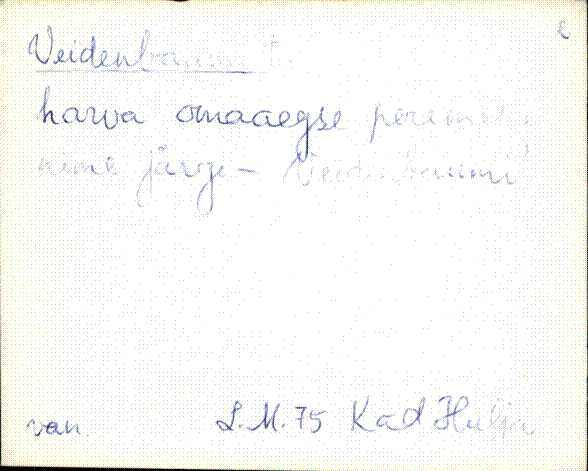 Veidenbaumi t.
harva omaaegse peremehe
nime järge - Veidenbaumi
van. L.M. 75 Kad Hulja